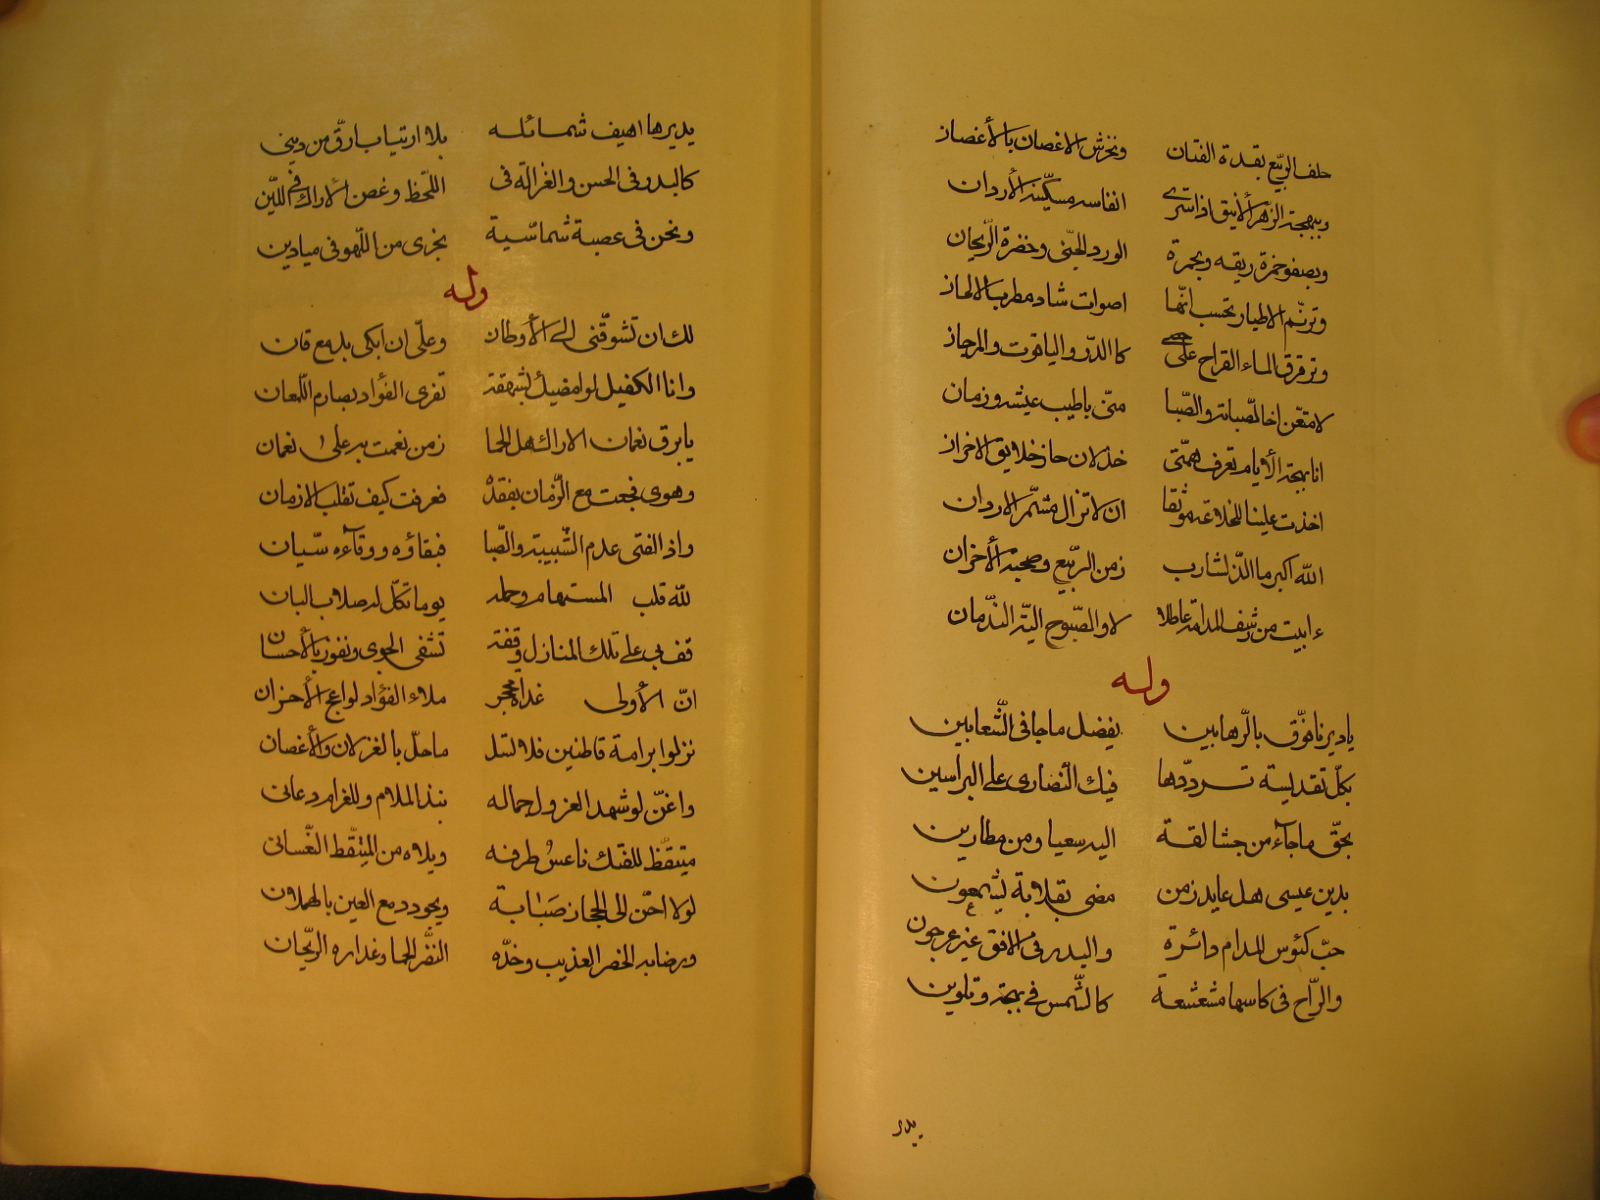 حلف الربيع بقدة الفتان ونخرش الاغصان بالأغصان
وببهجة الزهر الأنيق اذا سرى انفاسه مسكية الأردان
وبصفو خمرة ريقه وبحمرة الورد الجني وخضرة الريحان
وترنم الاطيار تحسب انها اصوات شاد مطرب الالحان
وترقرق الماء القراح على كالدر والياقوت والمرجان
لامتعن اخا الصبابة والصبا مني باطيب عيشه وزمان
انا بهجة الأيام تعرف همتي
اخذت علينا للخلاعة موثقا ان لا تزال مشمر الاردان
الله اكبر ما الذ لشارب زمن الربيع وصحبة الأخزان
ءابيت من رشف المدامة عاطلا لا والصبوح الية الندمان
وله
يا دير نا فوق بالرهابين بفضل ما جا في الشعابين
بكل تقديسة ترددها فيك النصارى على البراسين
بحق ما جاء من جثالقة اليه سعيا ومن مطارين
بدين عيسى هل عايد زمن مضى بقلاية لشمعون
حب كئوس المدام دائرة والبدر في الافق غير عرجون
والراح في كاسها مشعشعة كالشمس في بهجة وتلوين
يدير
يديرها اهيف شمائله بلا ارتياب ارق من ديني
كالبدر في الحسن والغزالة في اللحظ وغصن الأراك في اللين
ونحن في عصبة شماسية نجرى من اللهو في ميادين
وله
لك ان تشوقني الى الأوطان وعلى ان ابكى بدمع قان
وانا الكفيل لوامضيك بشهقة تفرى الفؤاد بصارم اللمعان
يا برق نعمان الاراك هل الحما زمن نعمت به على نعمان
وهوى فجعت مع الزمان بفقده فعرفت كيف تقلب الازمان
واذ الفتى عدم الشبيبة والصبا فبقاؤه ووقاءه سيان
لله قلب المستهام وحمله يوما تكل له صلاب البان
قف بي على تلك المنازل وقفة تشفى الجوى ونفوز بالأحسان
ان الأولى غداة محجر ملاء الفؤاد لواعج الأحزان
نزلوا برامة قاطنين فلا تسل ما حل بالغزلان والأغصان
واغن لو شهد العزول جماله نبذ الملام وللغرام دعانى
متيقظ للفتك ناعس طرفه ويلاه من المتيقظ النعسانى
لولا احن الى الحجاز صبابة ويجود دمع العين بالهملان
ورضابه الخصر العذيب وخده النضر الحما وعذاره الريحان